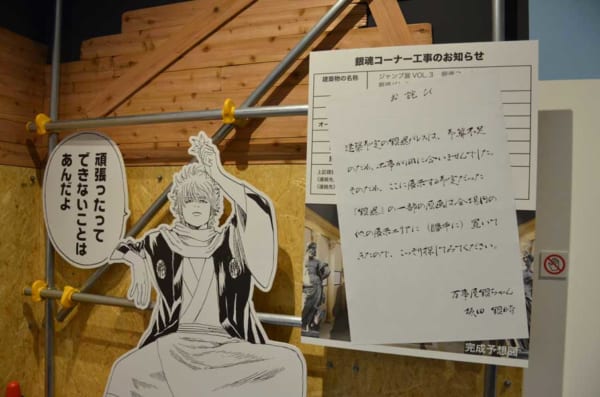 頑張ったって
できないことは
あんだよ
銀魂コーナー工事のお知らせ
建築物の名称
ジャンプ展VOL.3
お詫び
建築予定の銀魂パレスは、予算不足
のため、工事が間に合いませんでした。
そのため、ここに展示する予定だった
『銀魂』の一部の原画は、会場内の
他の展示エリアに(勝手に)置いて
きたので、こっそり探してみてください。
万事屋銀ちゃん
坂田銀時
完成予想図